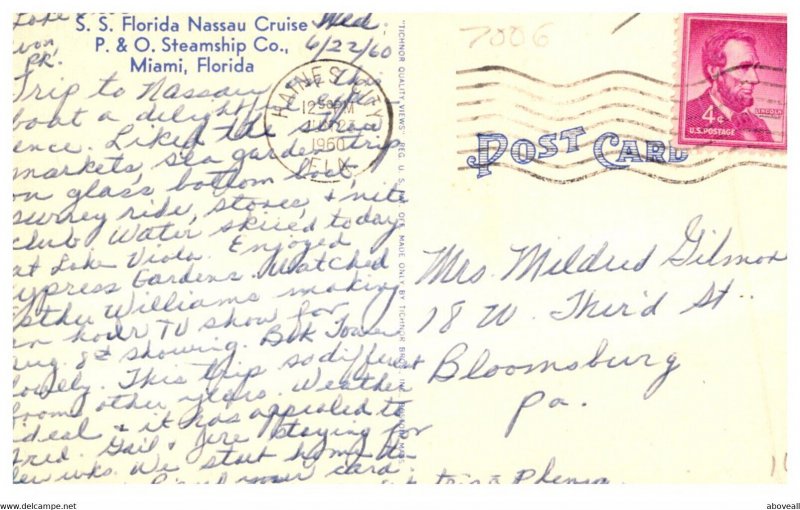 S. S. Florida Nassau Cruise
P. & O. Steamship Co.,
Miami, Florida
Wed.
6/22/60
Trip to Nassau this
boat a delightful
ence. Liked the straw
markets, sea garden trip
on glass bottom boat,
surrey ride, stores, & nite
club. Water skiied today
at Lake Viola. Enjoyed
ypress Gardens. Watched
sther Williams making
an hour TV show for
ug 8th showing. Bok Tower
lovely. This trip so different
from other years. Weather
ideal & it has appealed to
Fred. Gail & Jere staying for
few wks. We start home
your card.
TICHNOR QUALITY VIEWS, REG. U. S. PAT. OFF. MADE ONLY BY TICHNOR BROS., INC., BOSTON, MASS.
HAINES CITY
12 30 PM
1960
FLA.
7006
4¢
LINCOLN
U.S. POSTAGE
POST CARD
Mrs. Mildred Gilmor
18 W. Third St.
Bloomsburg
Pa.
aboveall